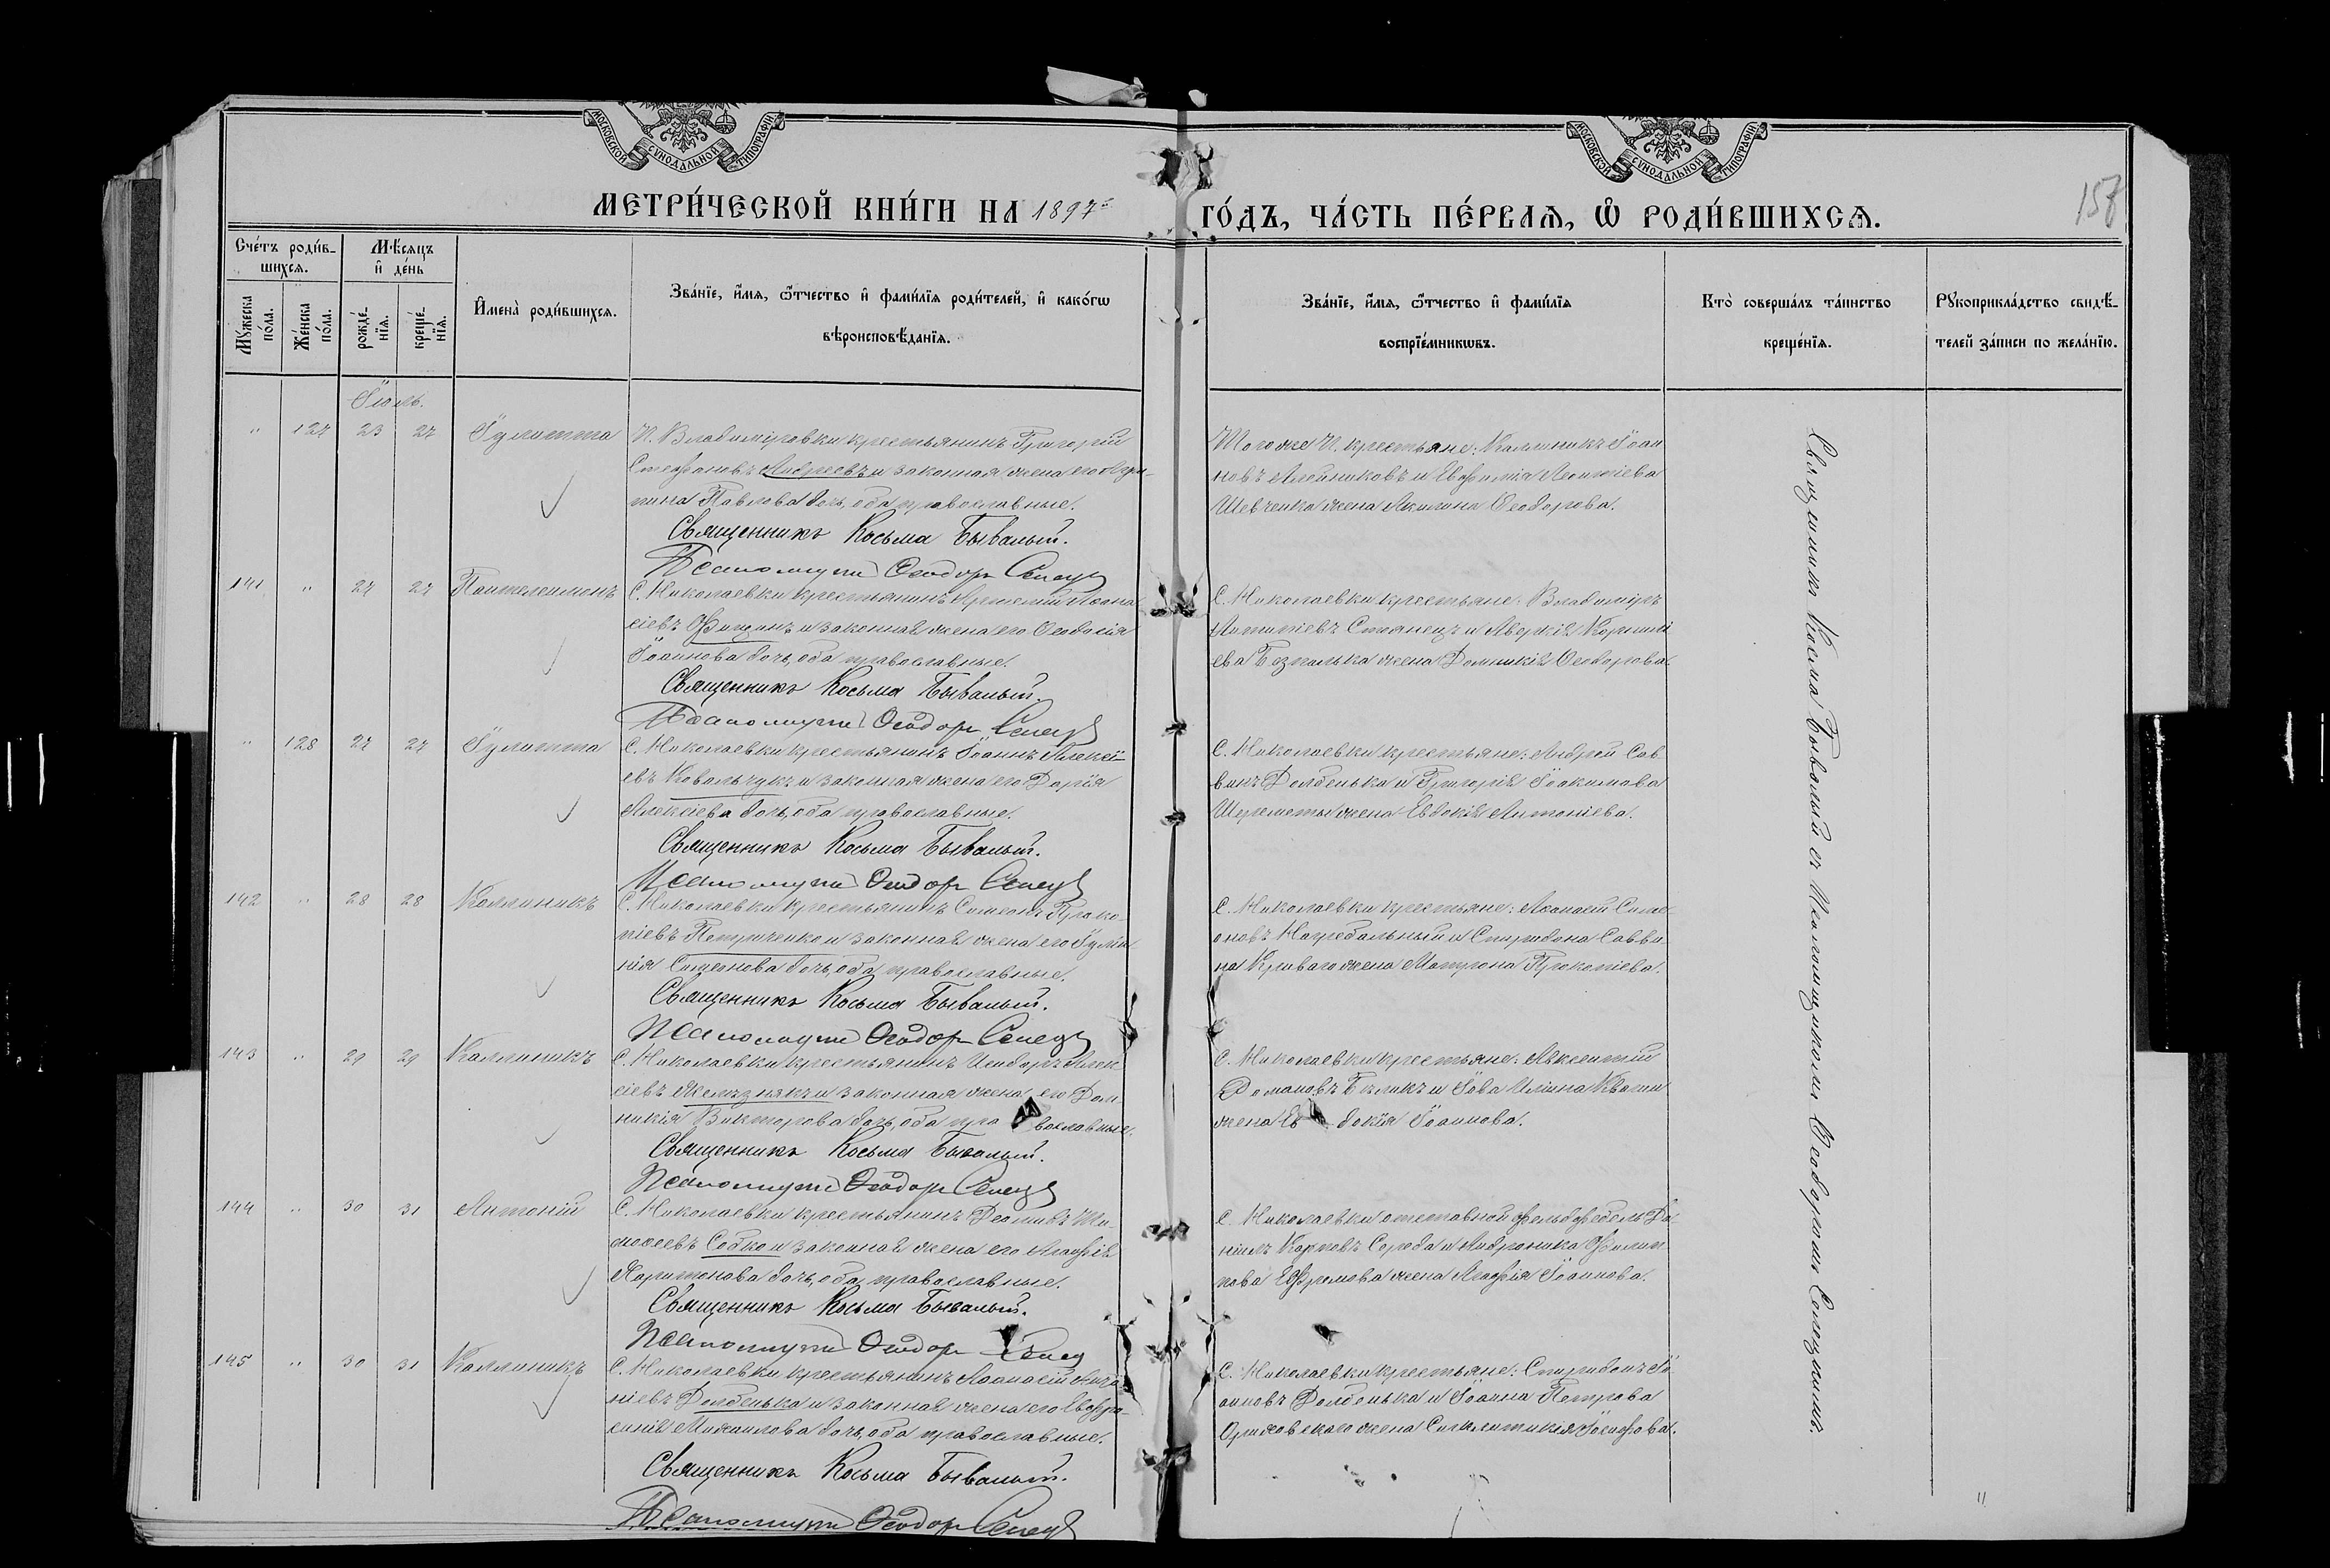 МОСКОВСКОЙ СѴНОДАЛЬНОЙ ТИПОГРАФІИ
МОСКОВСКОЙ СѴНОДАЛЬНОЙ ТИПОГРАФІИ
157
МЕТРИ́ЧЕСКОЙ КНИ́ГИ НА 1897й ГО́ДЪ, ЧА́СТЬ ПЕ́РВАѦ, Ѡ҆ РОДИ́ВШИХСѦ.
Сче́тъ роди́в-
шихсѧ.
Мꙋ́жеска по́ла.
Же́нска по́ла.
Мѣ́сѧцъ
и҆ де́нь
рожде́-нїѧ.
креще́-нїѧ.
И҆мена̀ роди́вшихсѧ.
Зва́нїе, и҆́мѧ, ѻ҆́тчество и҆ фами́лїѧ роди́телей, и҆ како́гѡ
вѣроисповѣ́данїѧ.
Зва́нїе, и҆́мѧ, ѻ҆́тчество и҆ фами́лїѧ
воспрїе́мникѡвъ.
Кто̀ соверша́лъ та́инство
креще́нїѧ.
Рꙋкоприкла́дство свидѣ́-
телей за́писи по жела́нїю.
Іюль.
" 127 23 27 Іулитта
П. Владиміровки крестьянинъ Григорій
Стефановъ Андреевъ и законная жена его Агри-
пина Павлова дочь, оба православные.
Священникъ Косьма Бывалый.
Псаломщикъ Ѳеодоръ Селецъ
Тогоже П. крестьяне: Каллиникъ Іоан
новъ Алейниковъ и Евфимія Леонтіева
Шевченка жена Акилина Ѳеодорова.
141 " 27 27 Пантелеимонъ
С. Николаевки крестьянинъ Артемій Аѳана
сіевъ и законная жена его Ѳеодосія
Іоаннова дочь, оба православные.
Священникъ Косьма Бывалый.
Псаломщикъ Ѳеодоръ Селецъ
С. Николаевки крестьяне: Владиміръ
Антипіевъ Стоянецъ и Аверкія Корнилі
ева Безпалька жена Домникія Ѳеодорова.
" 128 27 27 Іулитта
С. Николаевки крестьянинъ Іоаннъ Алексі-
евъ Ковальчукъ и законная жена его Дарія
Алексіева дочь, оба православные.
Священникъ Косьма Бывалый.
Псаломщикъ Ѳеодоръ Селецъ
С. Николаевки крестьяне: Андрей Сав
винъ Долбенька и Григорія Іоакимова
Шереметы жена Евдокія Антоніева.
142 " 28 28 Каллиникъ
С. Николаевки крестьянинъ Симеонъ Проко-
піевъ Петриченко и законная жена его Іулі
нія Симеонова дочь, оба православные.
Священникъ Косьма Бывалый.
Псаломщикъ Ѳеодоръ Селецъ
С. Николаевки крестьяне: Аѳанасій Симе-
оновъ Нагребальный и Спиридона Савви-
на Криваго жена Матрона Прокопіева.
143 " 29 29 Каллиникъ
С. Николаевки крестьянинъ Исидоръ Алек
сіевъ Железнякъ и законная жена его Дом-
никія Викторова дочь, оба православные.
Священникъ Косьма Бывалый.
Псаломщикъ Ѳеодоръ Селецъ
С. Николаевки крестьяне: Авксентій
Романовъ и Іова Иліина Кваши
жена Евдокія Іоаннова.
144 " 30 31 Антоній
С. Николаевки крестьянинъ Леонидъ Ти-
моѳеевъ Собко и законная жена его Агафія
Харитонова дочь, оба православные.
Священникъ Косьма Бывалый.
Псаломщикъ Ѳеодоръ Селецъ
С. Николаевки отставной фельдфебель Да-
ніилъ Карповъ Середа и Андроника Филип-
пова Ефремова жена Агафія Іоаннова.
145 " 30 31 Каллиникъ
С. Николаевки крестьянинъ Аѳанасій Ана
ніевъ Долбенька и законная жена его Евфро-
синія Михаилова дочь, оба православные.
Священникъ Косьма Бывалый.
Псаломщикъ Ѳеодоръ Селецъ
С. Николаевки крестьяне: Спиридонъ Іо-
анновъ Долбенька и Іоанна Петрова
Орѣховскаго жена Синклитикія Іосифова.
Священникъ Косма Бывалый съ Псаломщикомъ Ѳеодоромъ Селецкимъ.
"